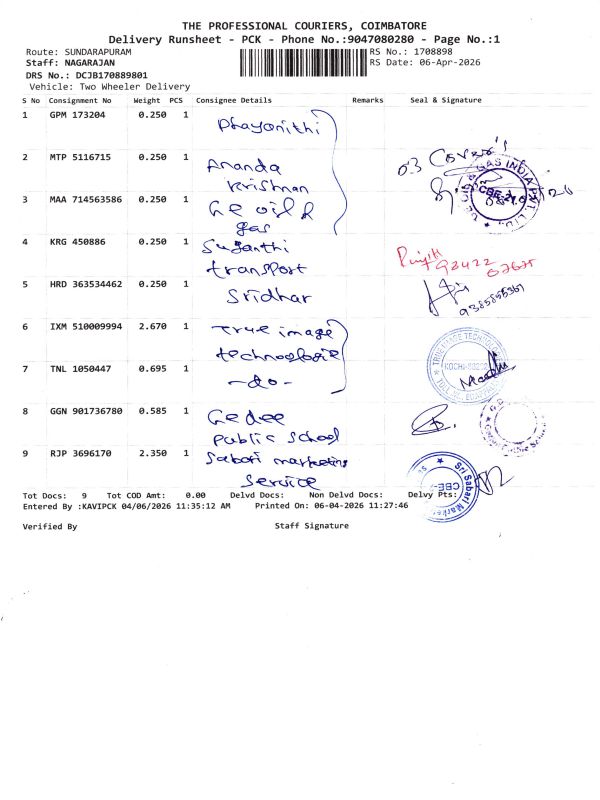 THE PROFESSIONAL COURIERS, COIMBATORE
Delivery Runsheet - PCK - Phone No.:9047080280 - Page No.:1
Route: SUNDARAPURAM
RS No.: 1708898
Staff: NAGARAJAN
RS Date: 06-Apr-2026
DRS No.: DCJB170889801
Vehicle: Two Wheeler Delivery
S No Consignment No Weight PCS Consignee Details Remarks Seal & Signature
1 GPM 173204 0.250 1
2 MTP 5116715 0.250 1 Ananda
Krishnan
03 Cover's
3 MAA 714563586 0.250 1 Ge oil &
gas
GAS INDIA PVT. LTD.
4 KRG 450886 0.250 1 Suganthi
transport
5 HRD 363534462 0.250 1 Sridhar
6 IXM 510009994 2.670 1 True image
technologie
7 TNL 1050447 0.695 1 -do-
8 GGN 901736780 0.585 1 Gedee
public school
9 RJP 3696170 2.350 1 Sabari marketing
Service
Sri Sabari
CBE-
Tot Docs: 9 Tot COD Amt: 0.00 Delvd Docs: Non Delvd Docs: Delvy Pts:
Entered By :KAVIPCK 04/06/2026 11:35:12 AM Printed On: 06-04-2026 11:27:46
Verified By Staff Signature